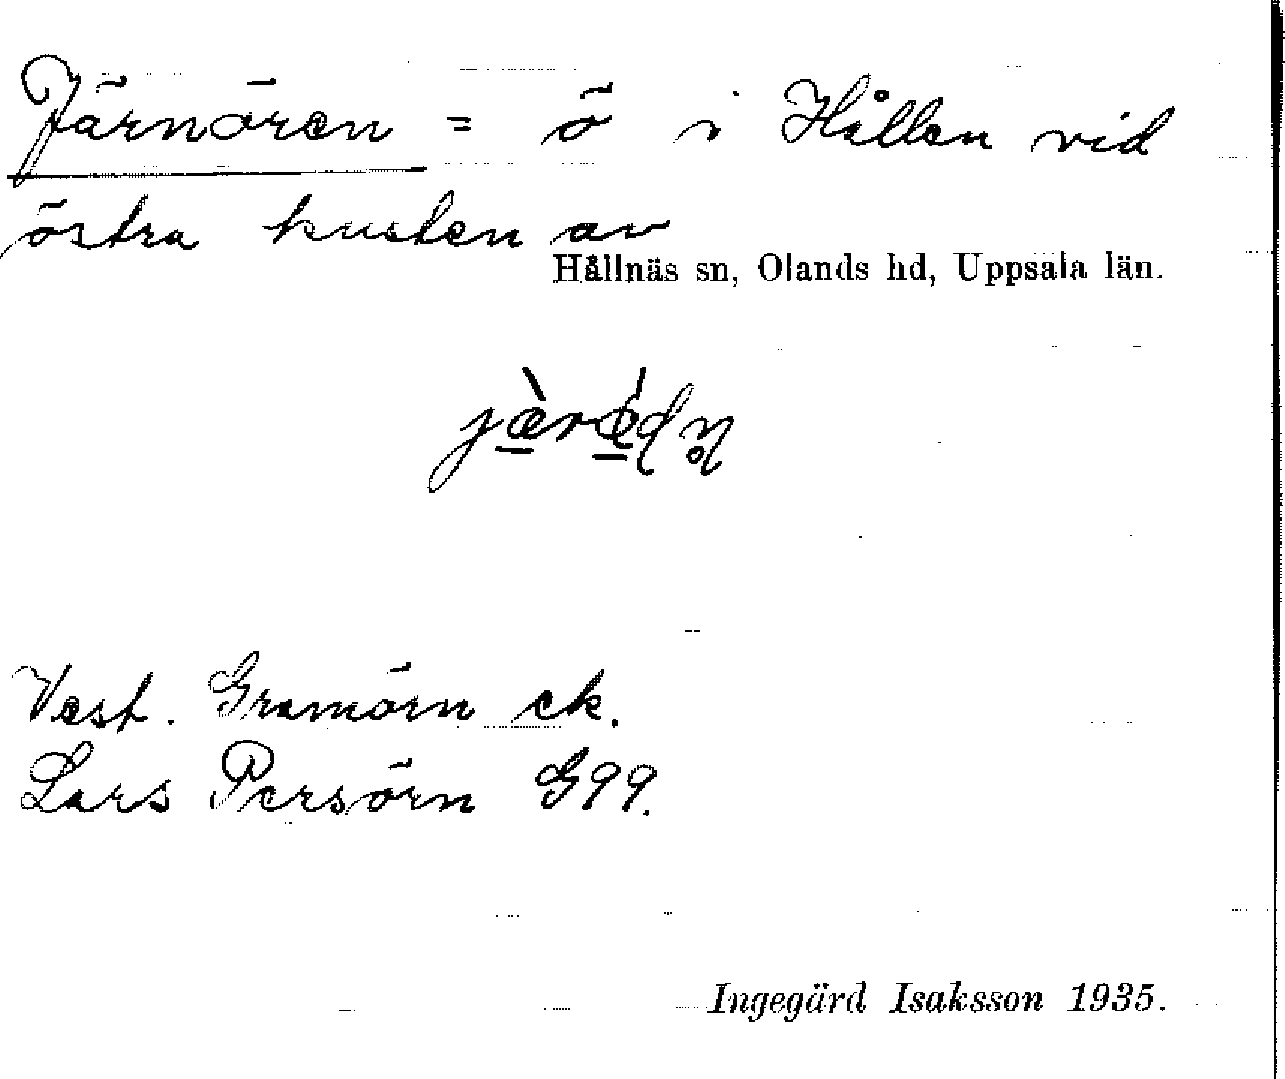 Järnören = ö i Hållen vid
östra kusten av
Hållnäs sn, Olands hd, Uppsala län.
Vest. Gramörn ek.
Lars Persörn G99.
Ingegärd Isaksson 1935.